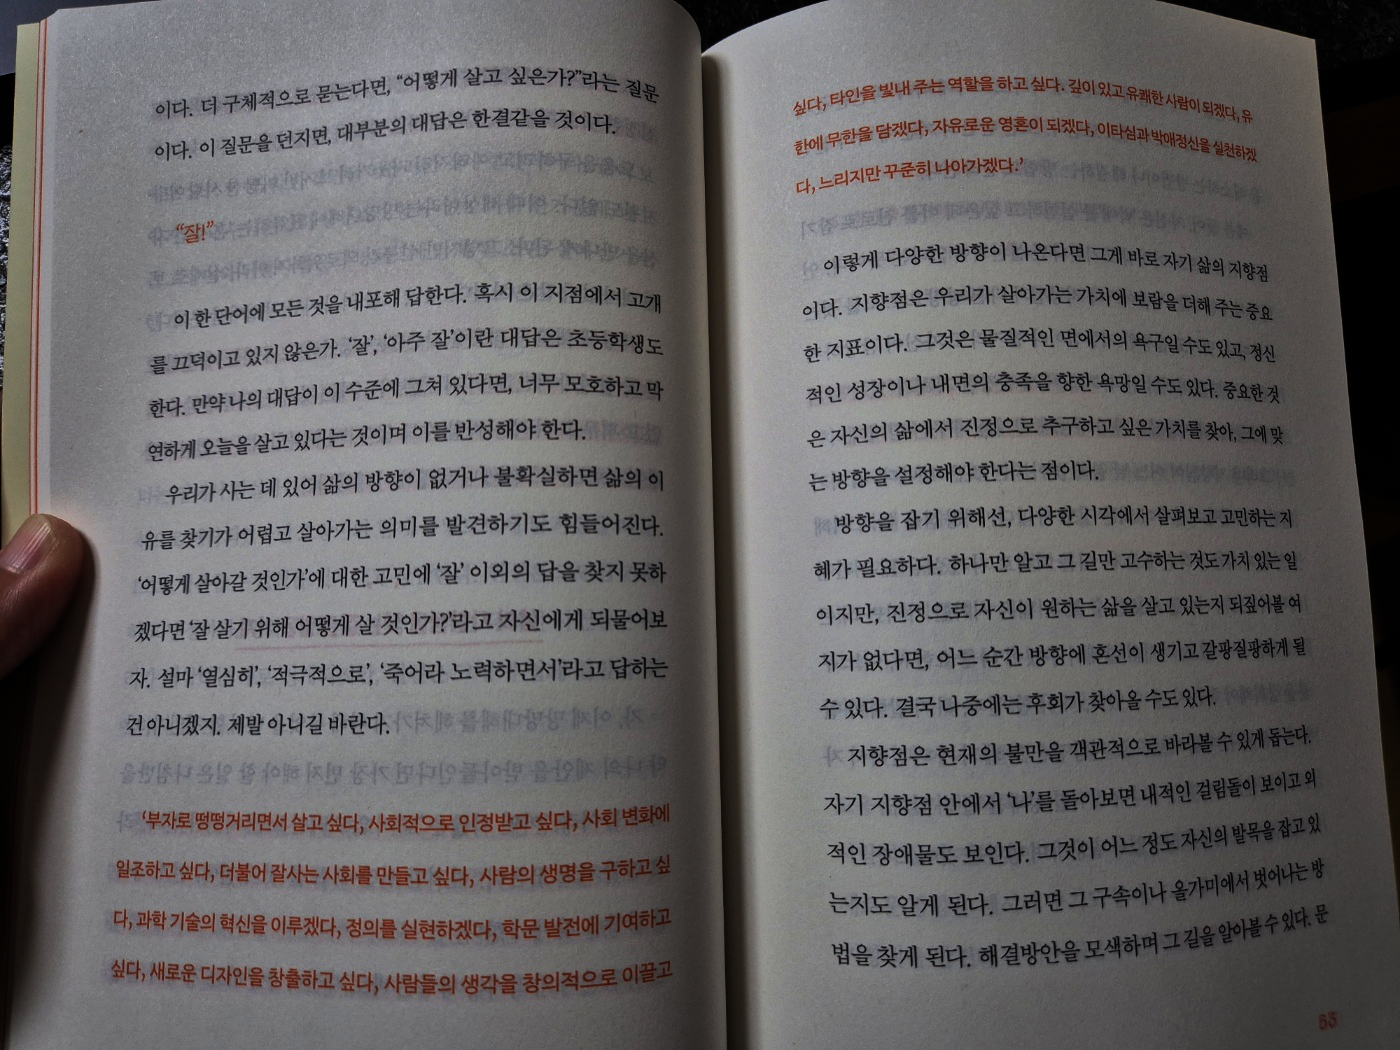 이다. 더 구체적으로 묻는다면, “어떻게 살고 싶은가?”라는 질문
이다. 이 질문을 던지면, 대부분의 대답은 한결같을 것이다.
“잘!”
이 한 단어에 모든 것을 내포해 답한다. 혹시 이 지점에서 고개
를 끄덕이고 있지 않은가. ‘잘’, ‘아주 잘’이란 대답은 초등학생도
한다. 만약 나의 대답이 이 수준에 그쳐 있다면, 너무 모호하고 막
연하게 오늘을 살고 있다는 것이며 이를 반성해야 한다.
우리가 사는 데 있어 삶의 방향이 없거나 불확실하면 삶의 이
유를 찾기가 어렵고 살아가는 의미를 발견하기도 힘들어진다.
‘어떻게 살아갈 것인가’에 대한 고민에 ‘잘’ 이외의 답을 찾지 못하
겠다면 ‘잘 살기 위해 어떻게 살 것인가?’라고 자신에게 되물어보
자. 설마 ‘열심히’, ‘적극적으로’, ‘죽어라 노력하면서’라고 답하는
건 아니겠지. 제발 아니길 바란다.
‘부자로 떵떵거리면서 살고 싶다, 사회적으로 인정받고 싶다, 사회 변화에
일조하고 싶다, 더불어 잘사는 사회를 만들고 싶다, 사람의 생명을 구하고 싶
다, 과학 기술의 혁신을 이루겠다, 정의를 실현하겠다, 학문 발전에 기여하고
싶다, 새로운 디자인을 창출하고 싶다, 사람들의 생각을 창의적으로 이끌고
싶다, 타인을 빛내 주는 역할을 하고 싶다. 깊이 있고 유쾌한 사람이 되겠다, 유
한에 무한을 담겠다, 자유로운 영혼이 되겠다, 이타심과 박애정신을 실천하겠
다, 느리지만 꾸준히 나아가겠다.’
이렇게 다양한 방향이 나온다면 그게 바로 자기 삶의 지향점
이다. 지향점은 우리가 살아가는 가치에 보람을 더해 주는 중요
한 지표이다. 그것은 물질적인 면에서의 욕구일 수도 있고, 정신
적인 성장이나 내면의 충족을 향한 욕망일 수도 있다. 중요한 것
은 자신의 삶에서 진정으로 추구하고 싶은 가치를 찾아, 그에 맞
는 방향을 설정해야 한다는 점이다.
방향을 잡기 위해선, 다양한 시각에서 살펴보고 고민하는 지
혜가 필요하다. 하나만 알고 그 길만 고수하는 것도 가치 있는 일
이지만, 진정으로 자신이 원하는 삶을 살고 있는지 되짚어볼 여
지가 없다면, 어느 순간 방향에 혼선이 생기고 갈팡질팡하게 될
수 있다. 결국 나중에는 후회가 찾아올 수도 있다.
지향점은 현재의 불만을 객관적으로 바라볼 수 있게 돕는다.
자기 지향점 안에서 ‘나’를 돌아보면 내적인 걸림돌이 보이고 외
적인 장애물도 보인다. 그것이 어느 정도 자신의 발목을 잡고 있
는지도 알게 된다. 그러면 그 구속이나 올가미에서 벗어나는 방
법을 찾게 된다. 해결방안을 모색하며 그 길을 알아볼 수 있다. 문